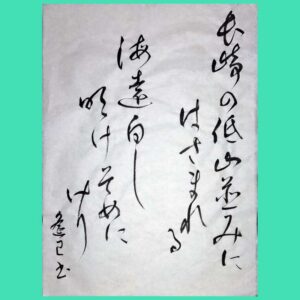 長崎の低山並みに
はさまれる
海遠白し
明けそめに
けり